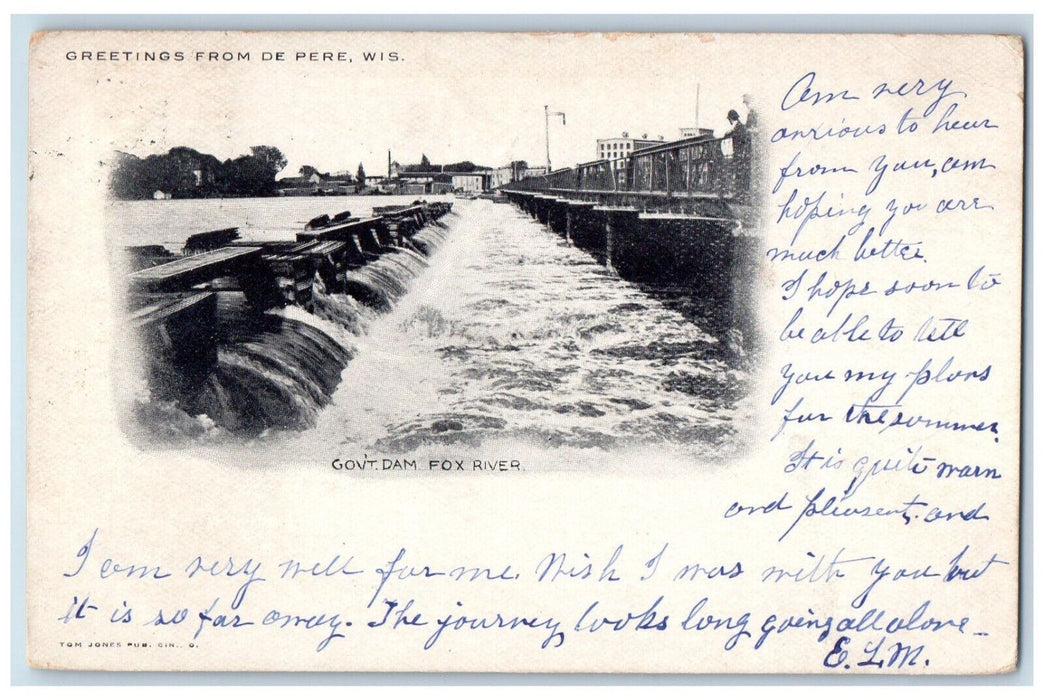 GREETINGS FROM DE PERE, WIS.
Am very
anxious to hear
from you, am
hoping you are
much better.
I hope soon to
be able to tell
you my plans
for the summer.
It is quite warm
and pleasent, and
I am very well for me. Wish I was with you but
it is so far away. The journey looks long going all alone –
E. L. M.
GOV'T. DAM. FOX RIVER.
TOM JONES PUB. CIN., O.